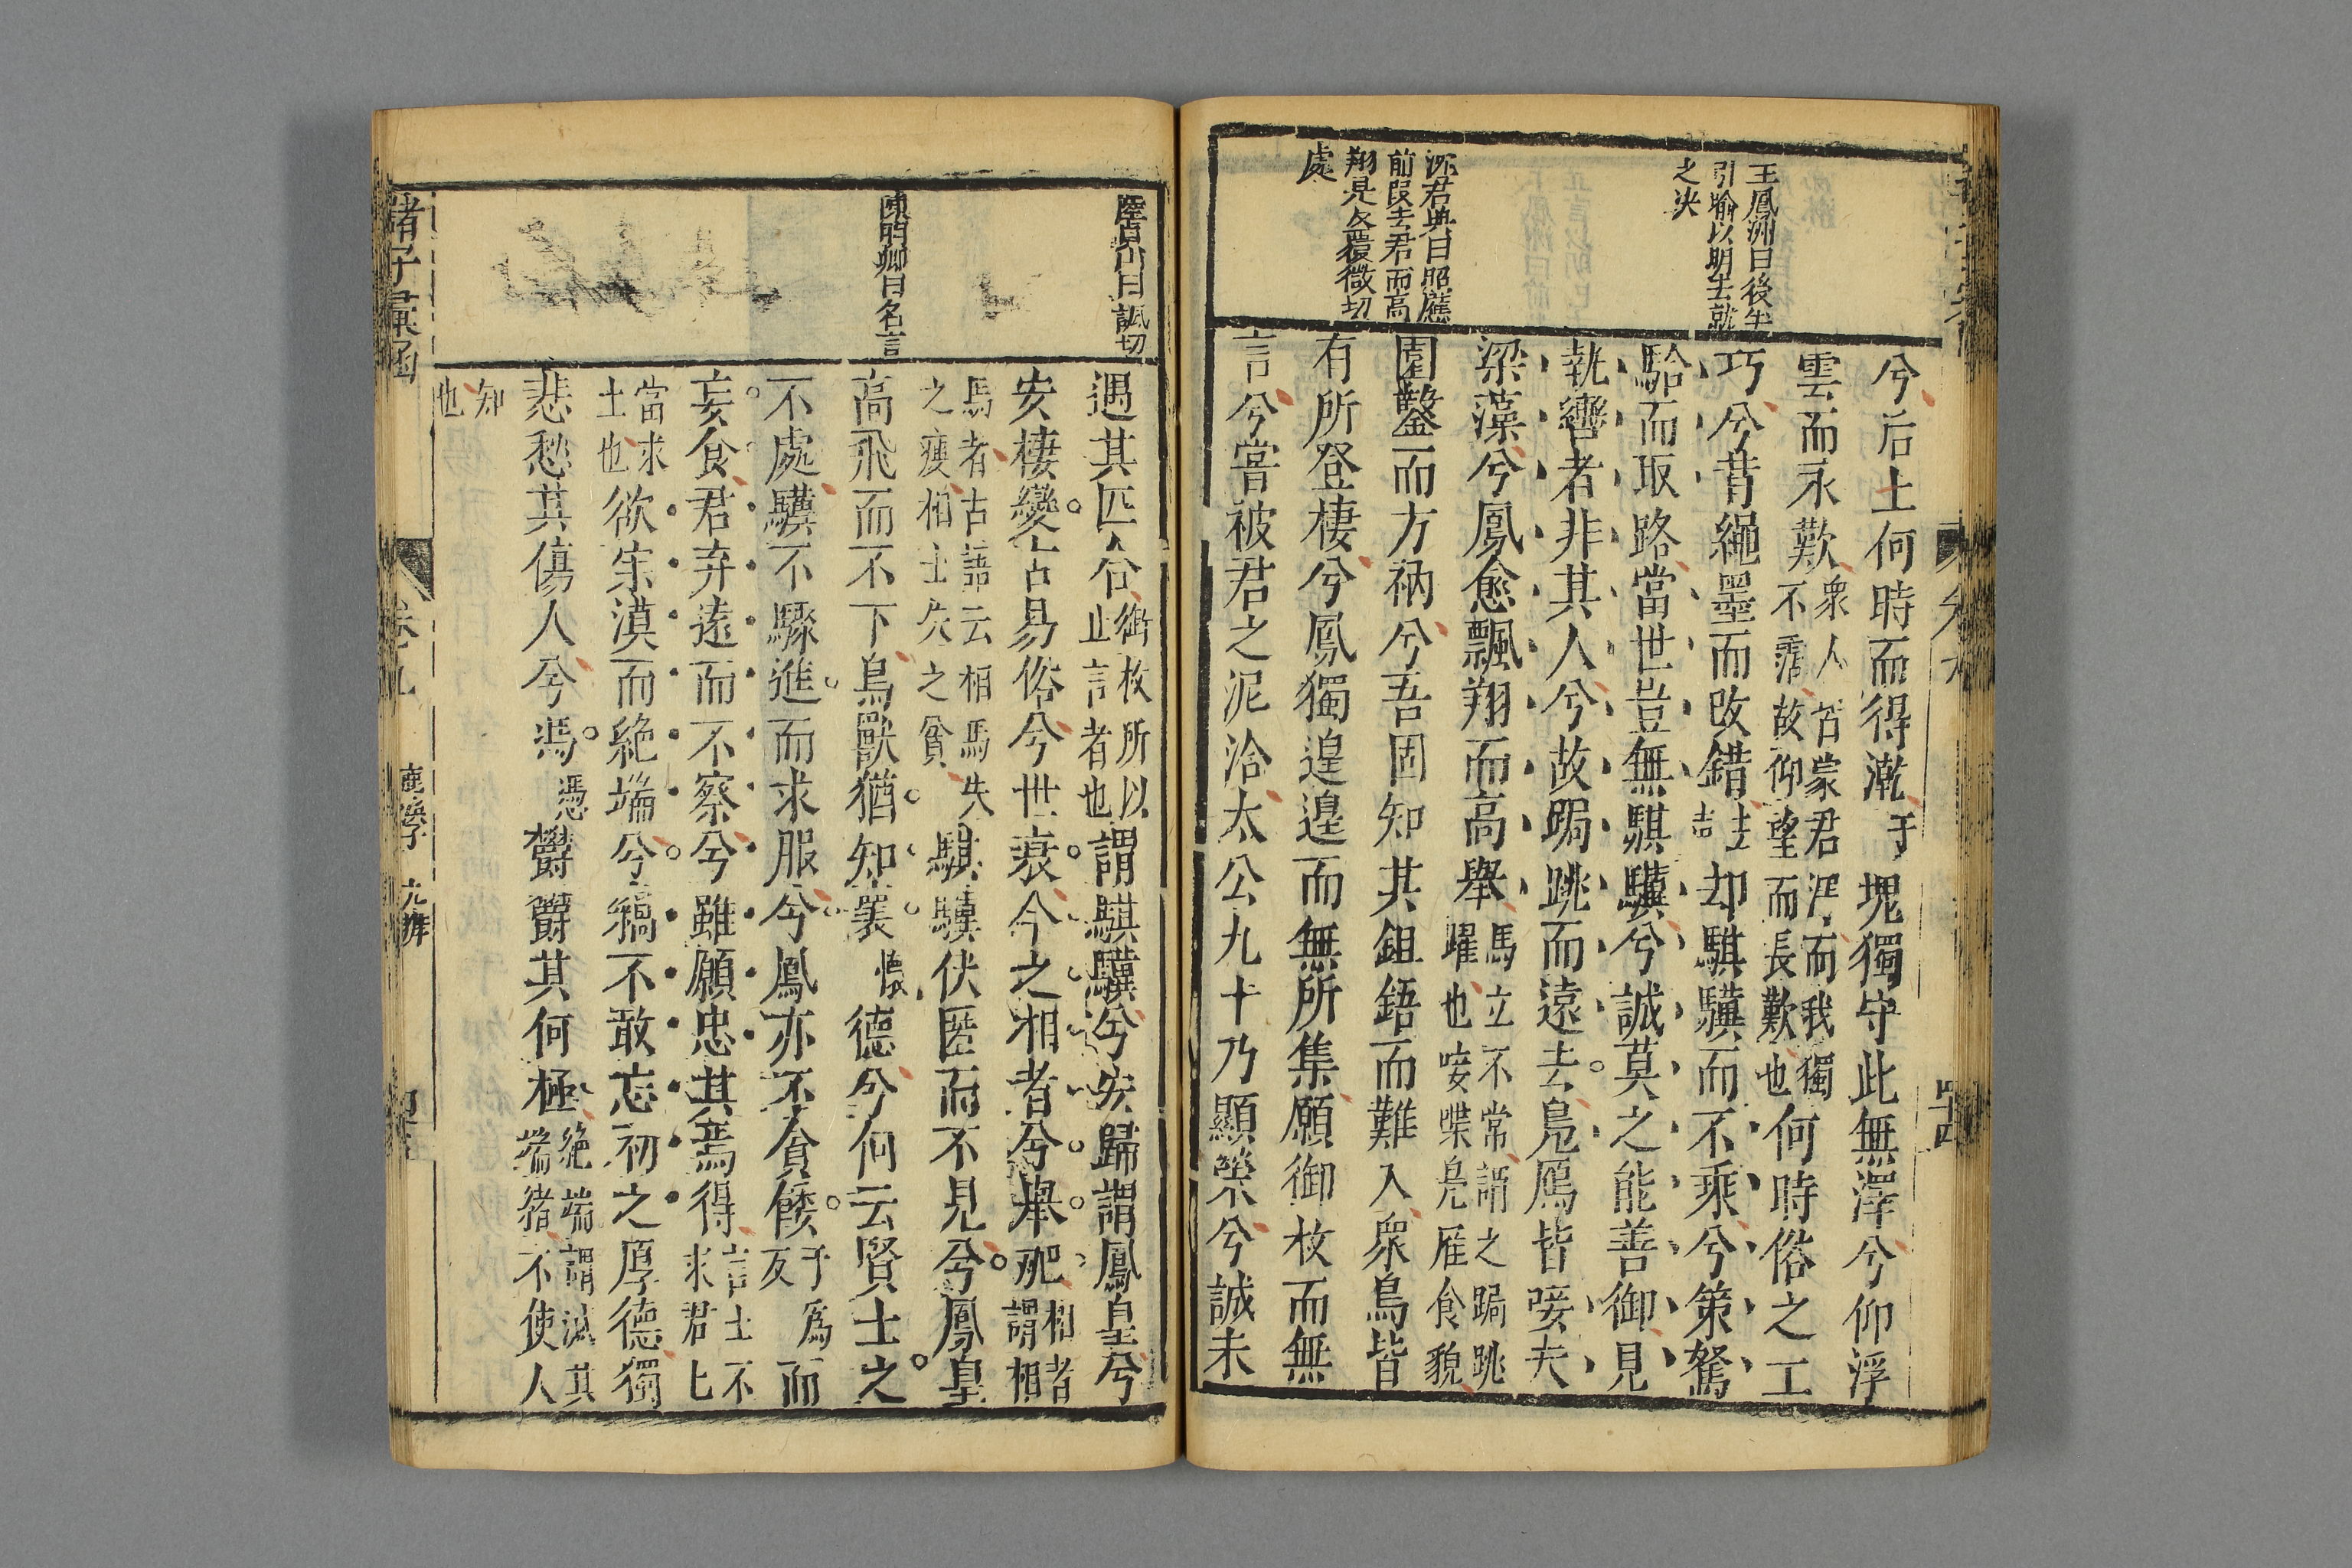 王鳳洲曰後半
引喻以明去就
之决
孫君典曰照應
前段去君而高
翔是反覆微切
處
兮后土何時而得漧于塊獨守此無澤兮仰浮
雲而永歎衆人皆蒙君澤而我獨
不霑故仰望而長歎也何時俗之工
巧兮背繩墨而改錯却騏驥而不乘兮策駑
駘而取路當世豈無騏驥兮誠莫之能善御見
執轡者非其人兮故跼跳而遠去鳧鴈皆唼夫
梁藻兮鳳愈飄翔而高舉馬立不常謂之跼跳
躍也唼喋鳧雁食貌
圜鑿而方枘兮吾固知其鉏鋙而難入衆鳥皆
有所登棲兮鳳獨遑遑而無所集願御枚而無
言兮嘗被君之泥洽太公九十乃顯榮兮誠未
陸貞山曰諷切
陳明卿曰名言
遇其匹合銜枚所以
止言者也謂騏驥兮安歸謂鳳皇兮
安棲變古易俗兮世衰今之相者兮舉肥相者
謂相
馬者古語云相馬失
之瘦相士失之貧騏驥伏匿而不見兮鳳皇
高飛而不下鳥獸猶知褱懷德兮何云賢士之
不處驥不驟進而求服兮鳳亦不貪餧于爲
反而
妄食君弃遠而不察兮雖願忠其焉得言士不
求君匕
當求
士也欲寂漠而絶端兮竊不敢忘初之厚德獨
悲愁其傷人兮馮憑鬱鬱其何極絶端謂滅其
端緒不使人
知
也
諸子彙函
卷九
鹿溪子
九辯